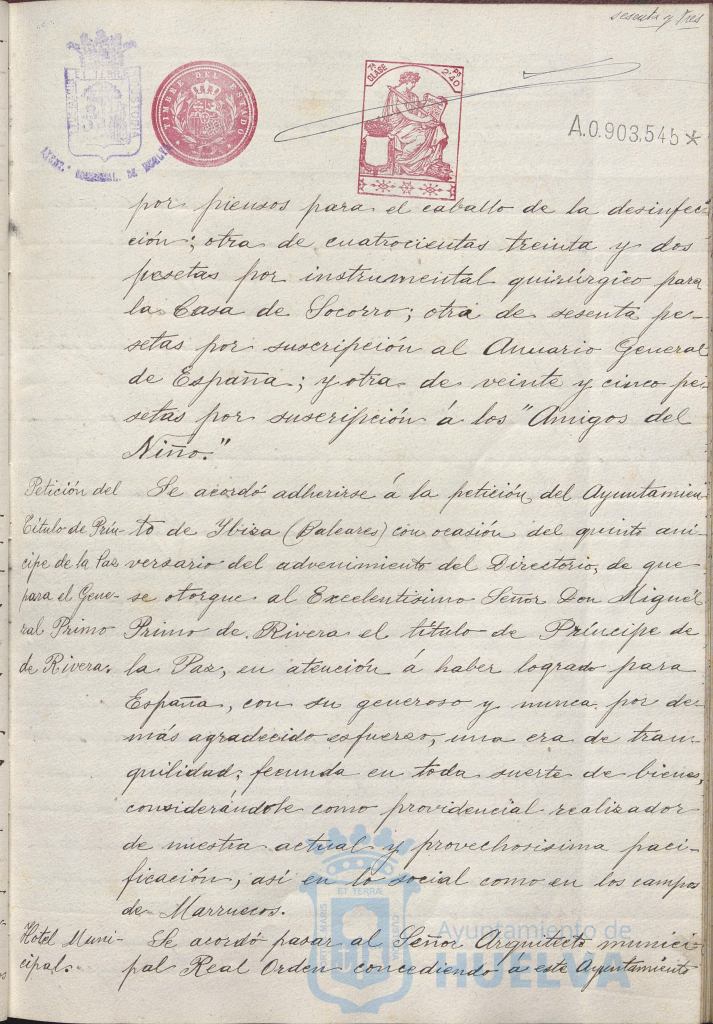 sesenta y tres
TIMBRE DEL ESTADO
7ª CLASE
2'40
A.0.903,545*
por piensos para el caballo de la desinfec-
ción; otra de cuatrocientas treinta y dos
pesetas por instrumental quirúrgico para
la Casa de Socorro; otra de sesenta pe-
setas por suscripción al Anuario General
de España; y otra de veinte y cinco pe-
setas por suscripción á los "Amigos del
Niño."
Petición del
Título de Prín-
cipe de la Paz
para el Gene-
ral Primo
de Rivera.
Se acordó adherirse á la petición del Ayuntamien
to de Ybiza (Baleares) con ocasión del quinto ani-
versario del advenimiento del Directorio, de que
se otorgue al Excelentísimo Señor Don Miguel
Primo de Rivera el título de Príncipe de
la Paz, en atención á haber logrado para
España, con su generoso y nunca por de-
más agradecido esfuerzo, una era de tran-
quilidad, fecunda en toda suerte de bienes,
considerándole como providencial realizador
de nuestra actual y provechosisima paci-
ficación, así en lo social como en los campos
de Marruecos.
Hotel Muni-
cipal.
Se acordó pasar al Señor Arquitecto munici-
pal Real Orden concediendo a este Ayuntamiento
Ayuntamiento de
HUELVA